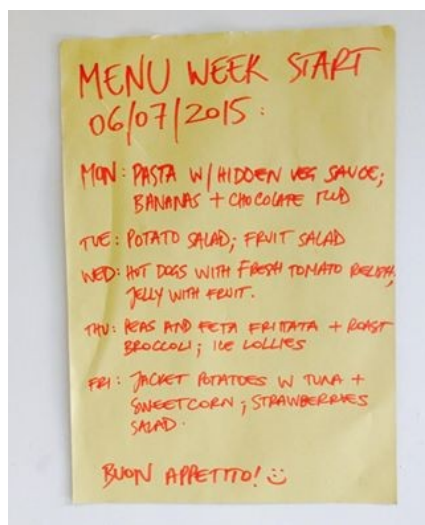 MENU WEEK START
06/07/2015:
MON: PASTA W/ HIDDEN VEG SAUCE;
BANANAS + CHOCOLATE
TUE: POTATO SALAD; FRUIT SALAD
WED: HOT DOGS WITH FRESH TOMATO RELISH,
JELLY WITH FRUIT.
THU: PEAS AND FETA FRITTATA + ROAST
BROCCOLI; ICE LOLLIES
FRI: JACKET POTATOES W TUNA +
SWEETCORN; STRAWBERRIES
SALAD.
BUON APPETITO! :)